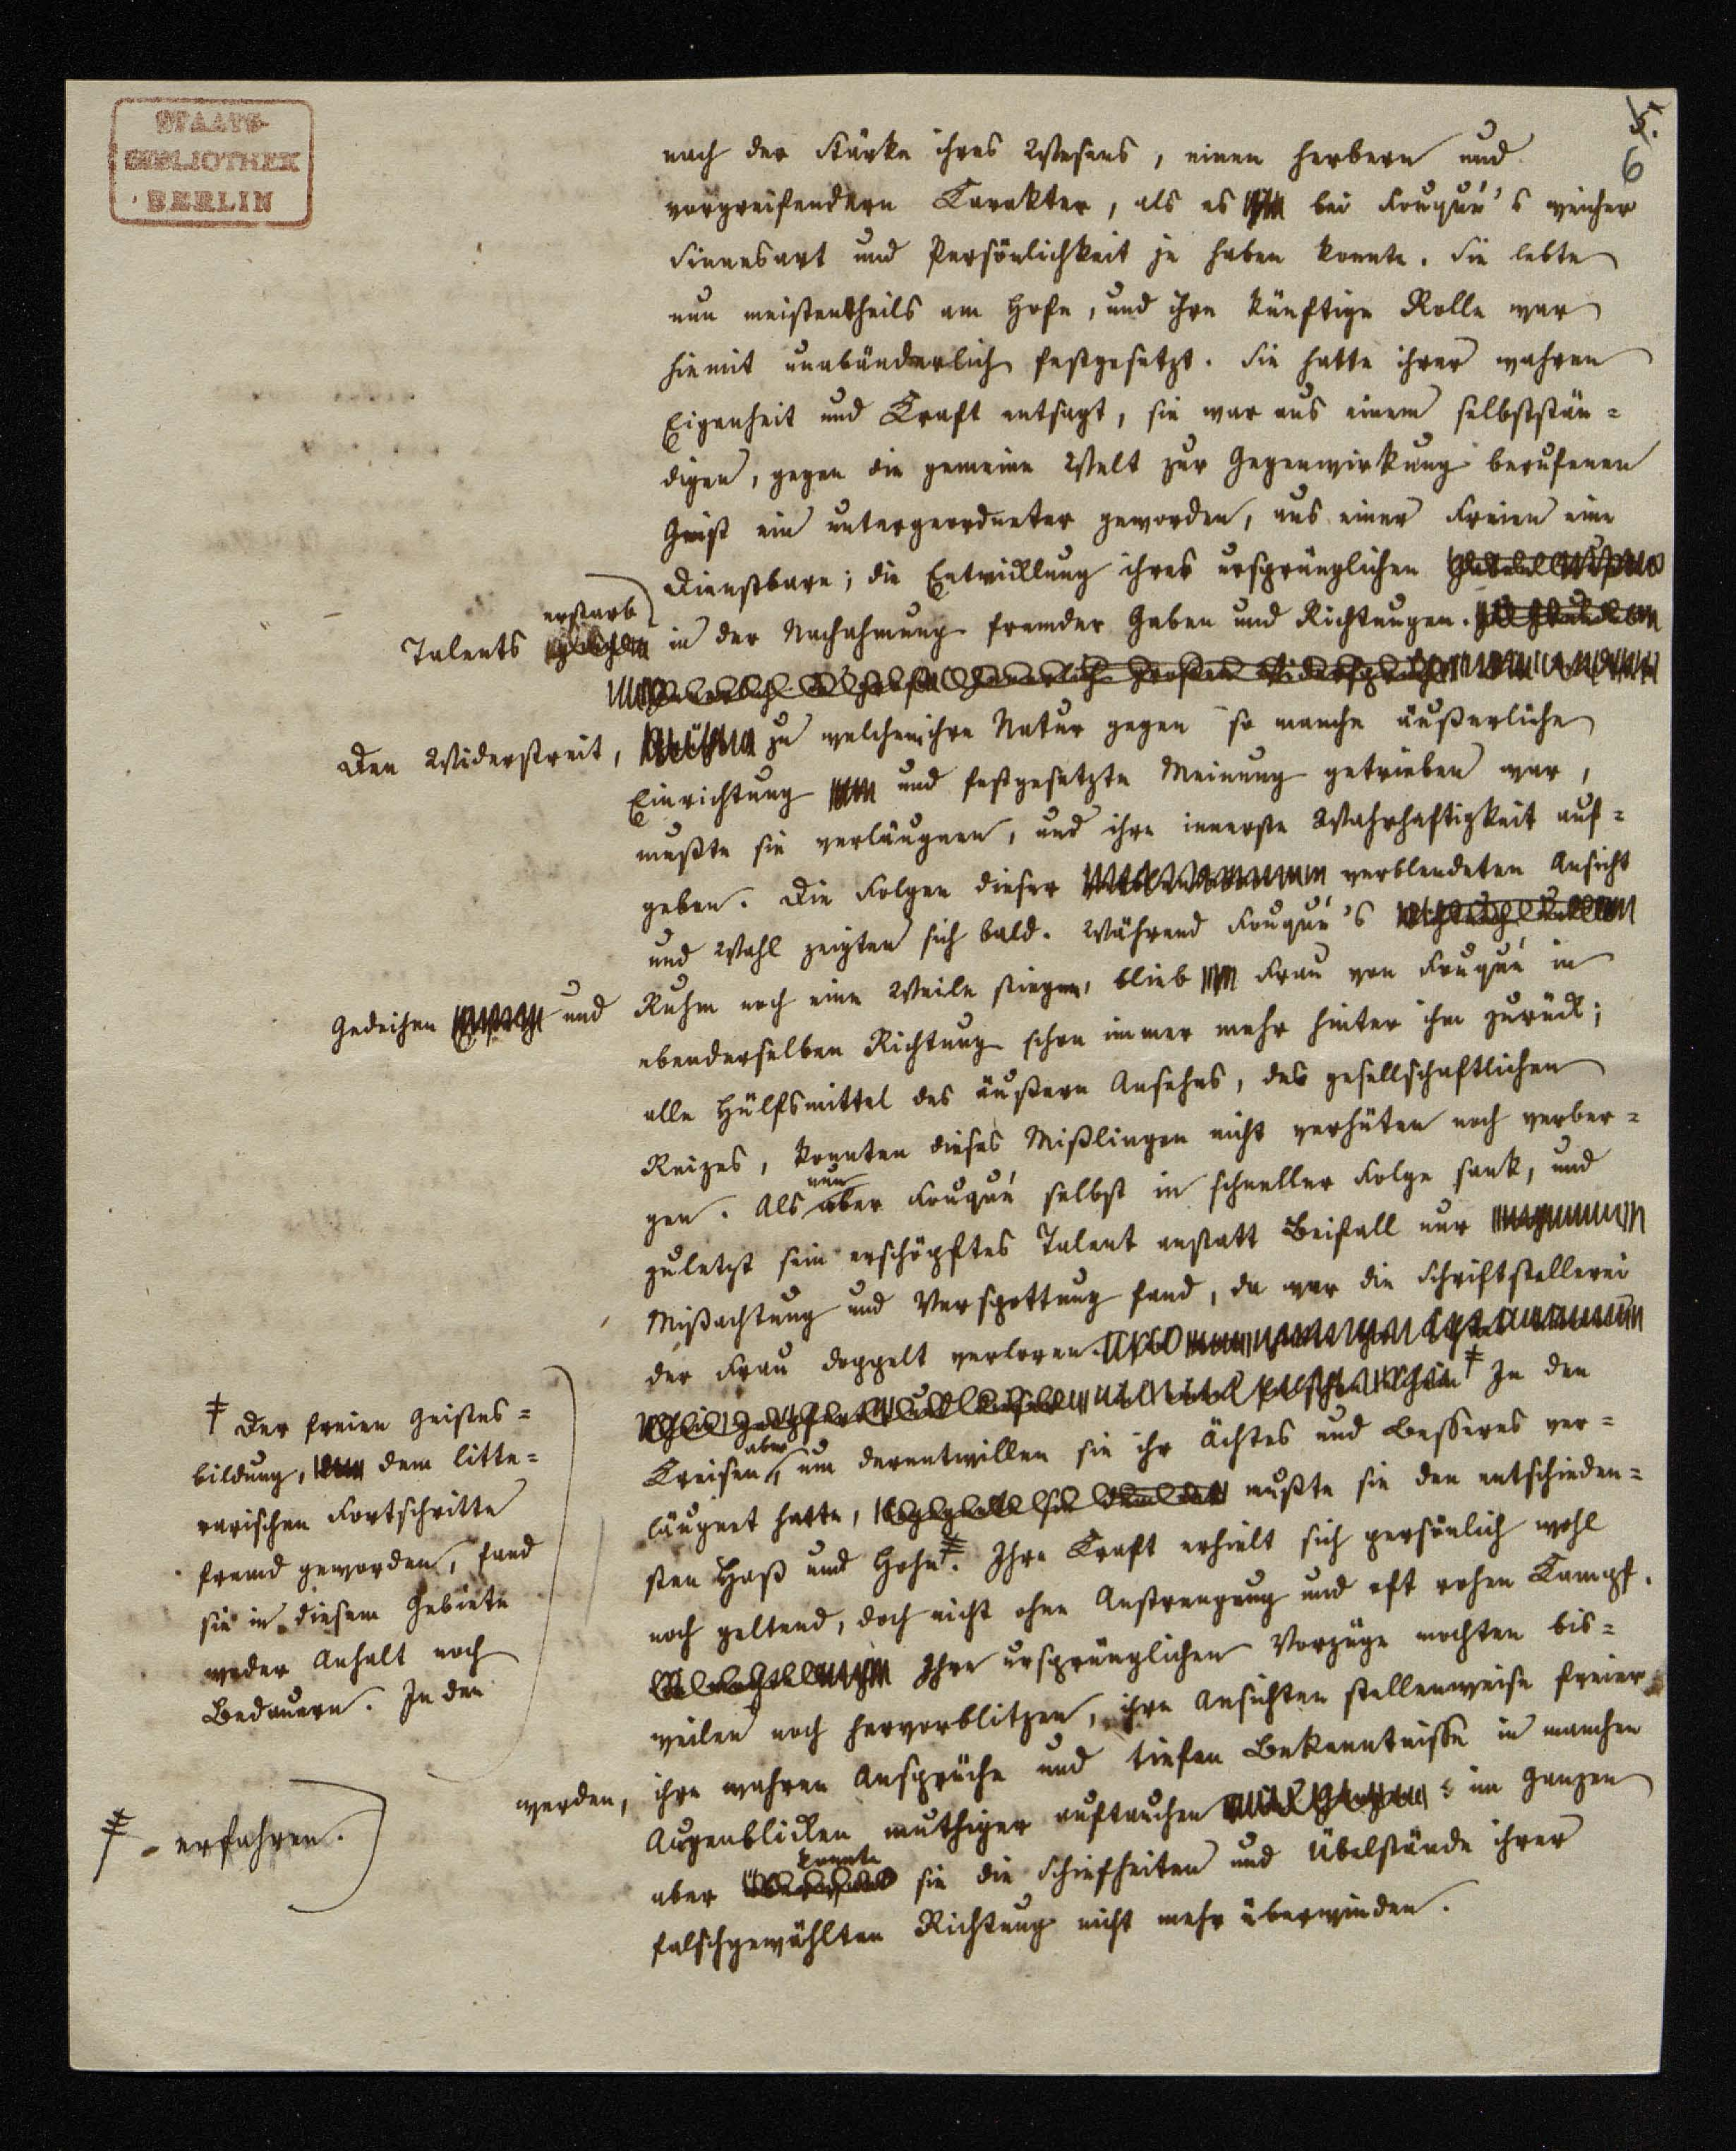 STAATS-
BIBLIOTHEK
BERLIN
5.
6
nach der Stärke ihres Wesens, einen herbern und
vorgreifendern Karakter, als es bei Fouqué's weicher
Sinnesart und Persönlichkeit je haben konnte. Sie lebte
nun meistentheils am Hofe, und ihre künftige Rolle war
hiemit unabänderlich festgesetzt. Sie hatte ihrer wahren
Eigenheit und Kraft entsagt, sie war aus einem selbststän=
digen, gegen die gemeine Welt zur Gegenwirkung berufenen
Geist ein untergeordneter geworden, aus einer Freien eine
Dienstbare; die Entwicklung ihres ursprünglichen
erstarb
Talents in der Nachahmung fremder Gaben und Richtungen.
Den Widerstreit, zu welchem ihre Natur gegen so manche äußerliche
Einrichtung und festgesetzte Meinung getrieben war,
mußte sie verläugnen, und ihre innerste Wahrhaftigkeit auf=
geben. Die Folgen dieser verblendeten Ansicht
und Wahl zeigten sich bald. Während Fouqué's
Gedeihen und Ruhm noch eine Weile stiegen, blieb Frau von Fouqué in
ebenderselben Richtung schon immer mehr hinter ihm zurück;
alle Hülfsmittel des äußern Ansehns, des gesellschaftlichen
Reizes, konnten dieses Mißlingen nicht verhüten noch verber=
nun
gen. Als aber Fouqué selbst in schneller Folge sank, und
zuletzt sein erschöpftes Talent anstatt Beifall nur
Mißachtung und Verspottung fand, da war die Schriftstellerei
der Frau doppelt verloren.
‡ In den
aber
Kreisen, um derentwillen sie ihr Ächtes und Besseres ver=
läugnet hatte, mußte sie den entschieden=
sten Haß und Hohn ‡. Ihre Kraft erhielt sich persönlich wohl
noch geltend, doch nicht ohne Anstrengung und oft rohen Kampf.
Ihre ursprünglichen Vorzüge mochten bis=
weilen noch hervorblitzen, ihre Ansichten stellenweise freier
werden, ihre wahren Ansprüche und tiefen Bekenntnisse in manchen
Augenblicken muthiger auftauchen; im Ganzen
konnte
aber sie die Schiefheiten und Übelstände ihrer
falschgewählten Richtung nicht mehr überwinden.
‡ Der freien Geistes=
bildung, dem litte=
rarischen Fortschritte
fremd geworden, fand
sie in diesem Gebiete
weder Anhalt noch
Bedauern. In den
‡ - erfahren.